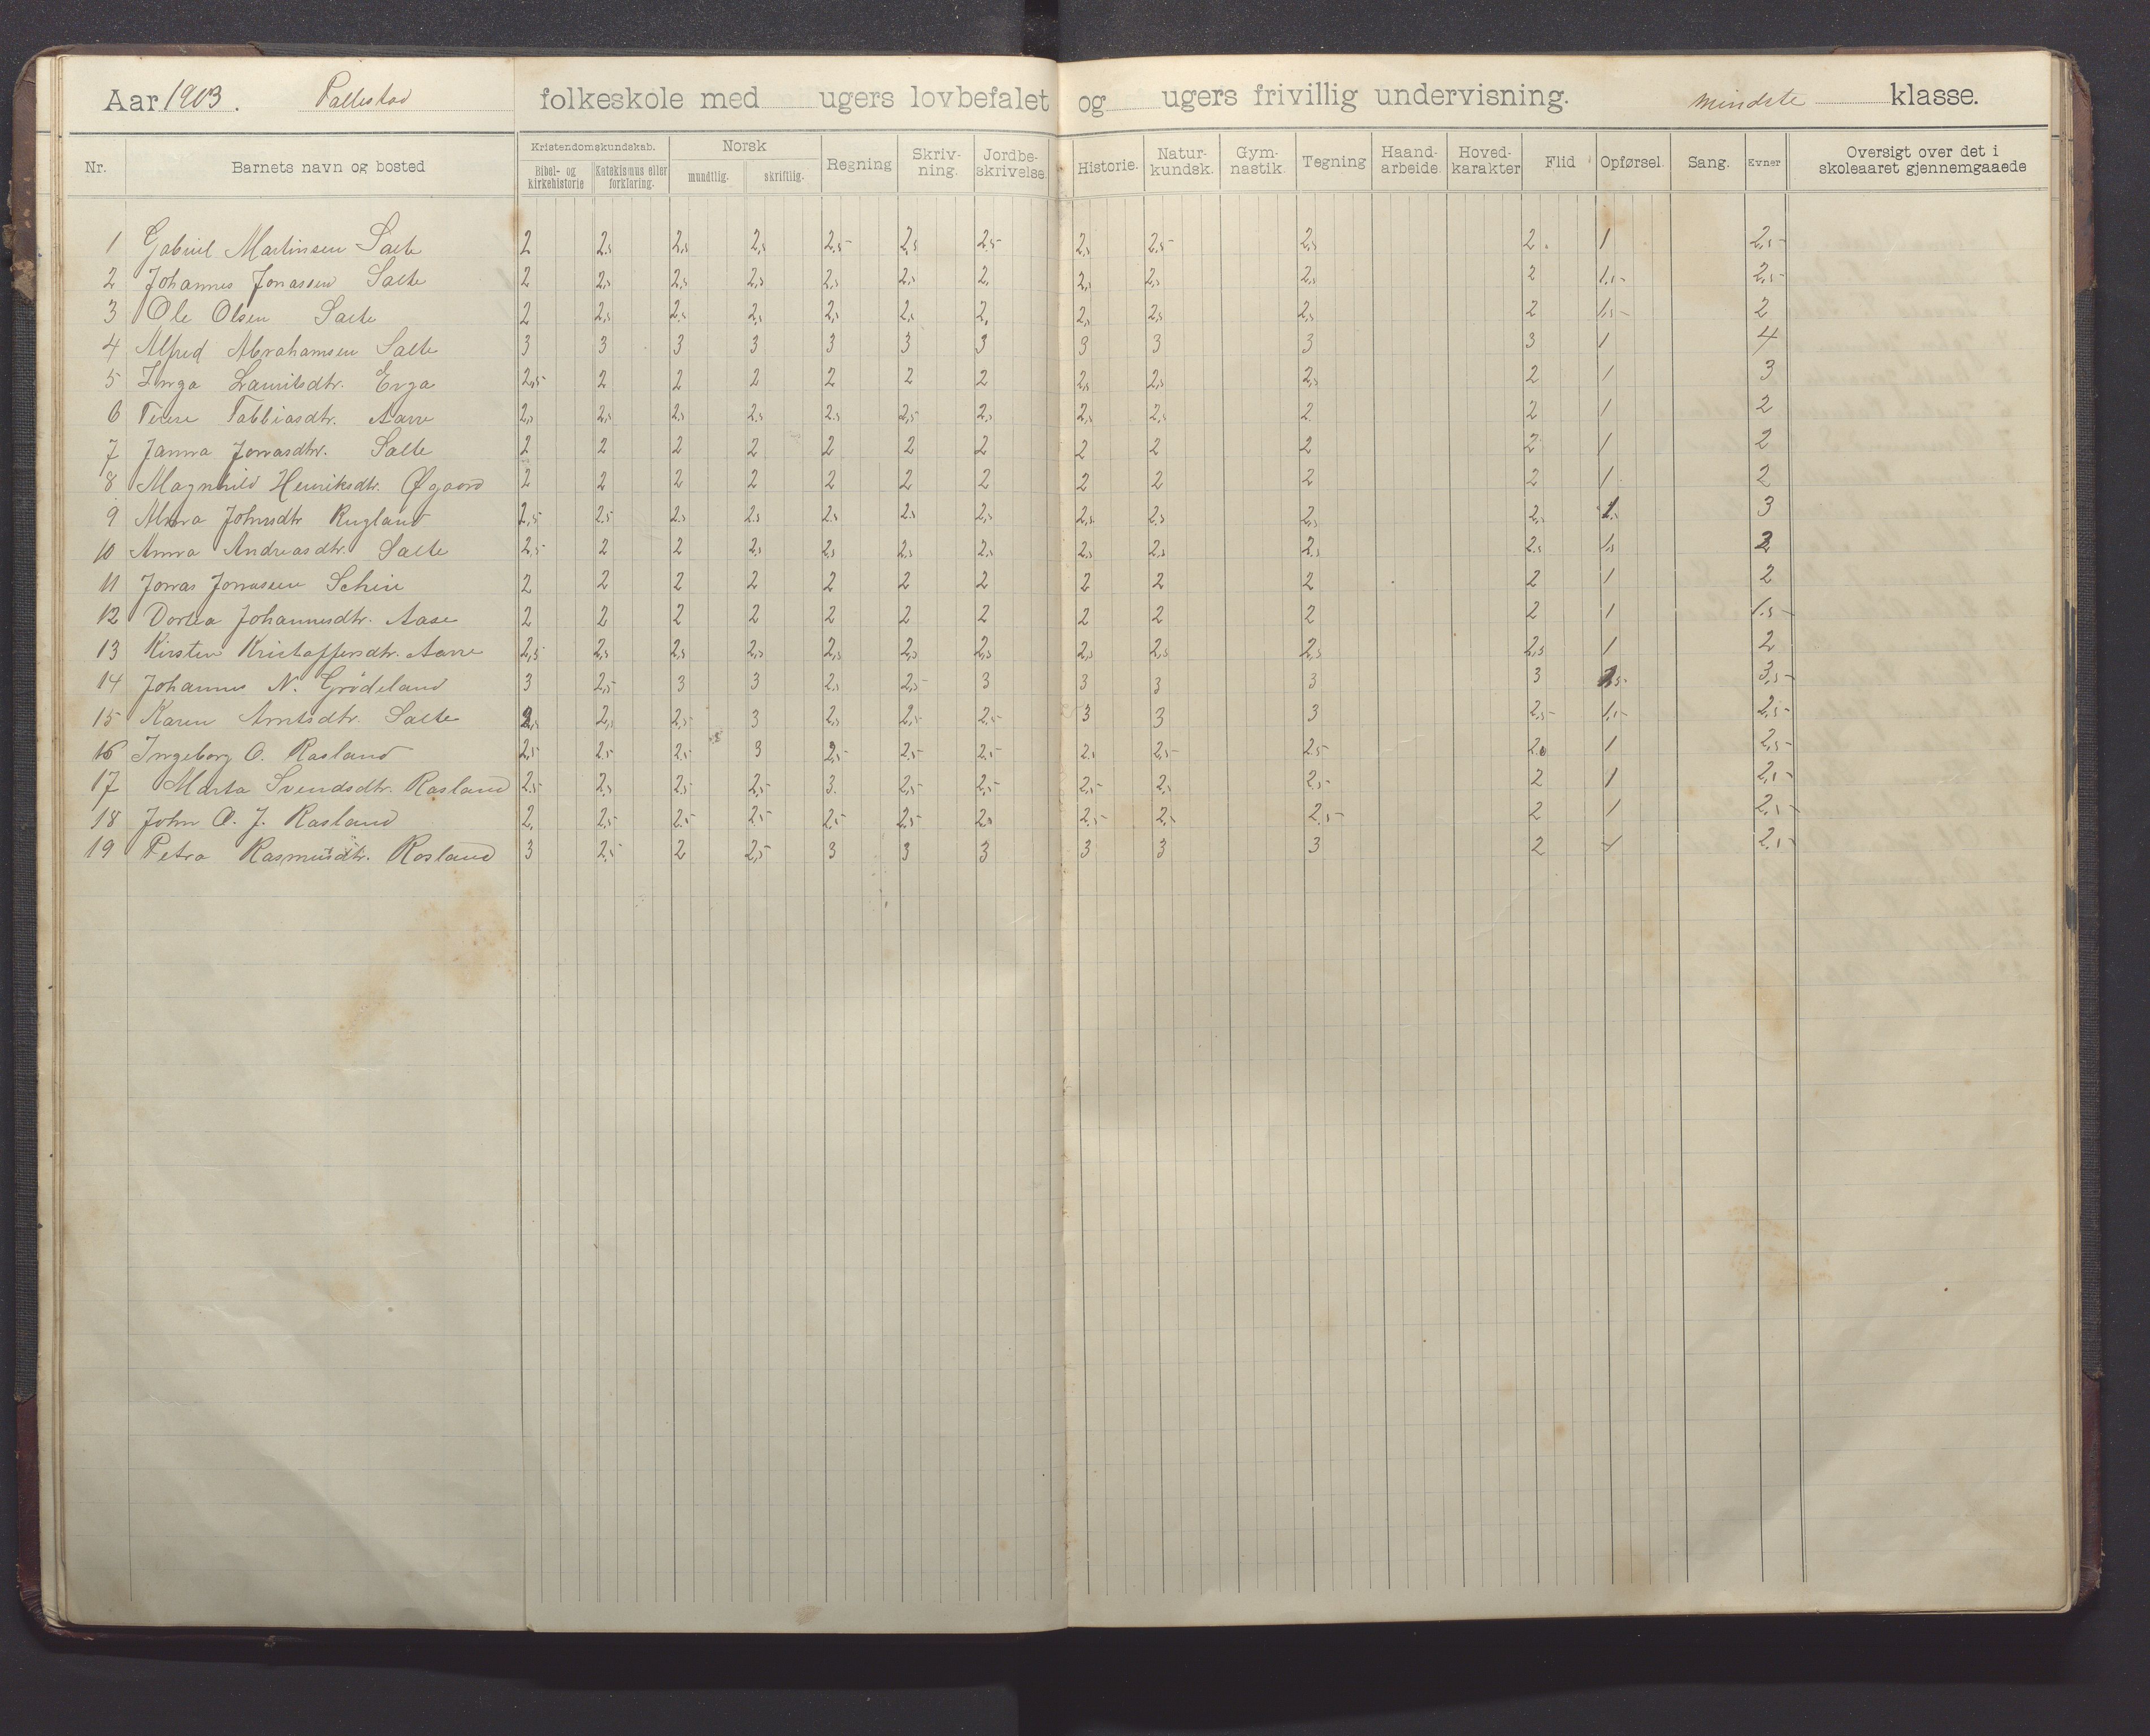 Aar 1903. Pallestad folkeskole med ugers lovbefalet og ugers frivillig undervisning. mindste klasse.
Nr. Barnets navn og bosted Kristendomskundskab. Bibel- og kirkehistorie Katekismus eller forklaring. Norsk mundtlig. skriftlig. Regning Skriv-ning. Jordbe-skrivelse. Historie. Natur-kundsk. Gym-nastik. Tegning Haand-arbeide. Hoved-karakter Flid Opførsel. Sang. Evner Oversigt over det i skoleaaret gjennemgaaede
1 Gabriel Martinsen Salte 2 2,5 2,5 2,5 2,5 2,5 2,5 2,5 2,5 2,5 2. 1 2,5
2 Johannes Jonassen Salte 2 2,5 2,5 2,5 2,5 2,5 2, 2,5 2,5 2,5 2 1,5 2,5
3 Ole Olsen Salte 2 2,5 2,5 2,5 2,5 2,5 2, 2,5 2,5 2,5 2 1,5 2
4 Alfred Abrahamsen Salte 3 3 3 3 3 3 3 3 3 3 3 1 4
5 Inga Lauritsdtr. Erga 2,5 2 2 2 2 2 2 2,5 2,5 2,5 2 1 3
6 Tabbiasdtr. Aarre 2,5 2,5 2,5 2,5 2,5 2,5 2,5 2,5 2,5 2 2 1 2
7 Janna Jonasdtr. Salte 2 2 2 2 2 2 2 2 2 2 2 1 2
8 Magnhild Henriksdtr. Øgaard 2 2 2 2 2 2 2 2 2 2 2 1 2
9 Johnsdtr Rugland 2,5 2,5 2,5 2,5 2,5 2,5 2,5 2,5 2,5 2,5 2,5 1, 3
10 Anna Andreasdtr. Salte 2,5 2 2 2,5 2,5 2,5 2,5 2,5 2,5 2,5 2,5 1,5 2
11 Jonas Jonassen 2 2 2 2 2 2 2 2 2 2 2 1 2
12 Dortea Johannesdtr. Aase 2 2 2 2 2 2 2 2 2 2 2 1 1,5
13 Kirsten Kristoffersdtr. Aarre 2,5 2,5 2,5 2,5 2,5 2,5 2,5 2,5 2,5 2,5 2,5 1 2
14 Johannes N. Grödeland 3 2,5 3 3 2,5 2,5 3 3 3 3 3 1,5 3,5
15 Karen Arntsdtr. Salte 2,5 2,5 2,5 3 2,5 2,5 2,5 3 3 3 2,5 1,5 2,5
16 Ingeborg O. Rasland 2,5 2,5 2,5 3 2,5 2,5 2,5 2,5 2,5 2,5 2 1 2,5
17 Marta Svendsdtr. Rasland 2,5 2,5 2,5 2,5 3. 2,5 2,5 2,5 2,5 2,5 2 1 2,5
18 John O. J. Rasland 2, 2,5 2,5 2,5 2,5 2,5 2,5 2,5 2,5 2,5 2 1 2,5
19 Petra Rasmusdtr. Rosland 3 2,5 2 2,5 3 3 3 3 3 3 2 1 2,5